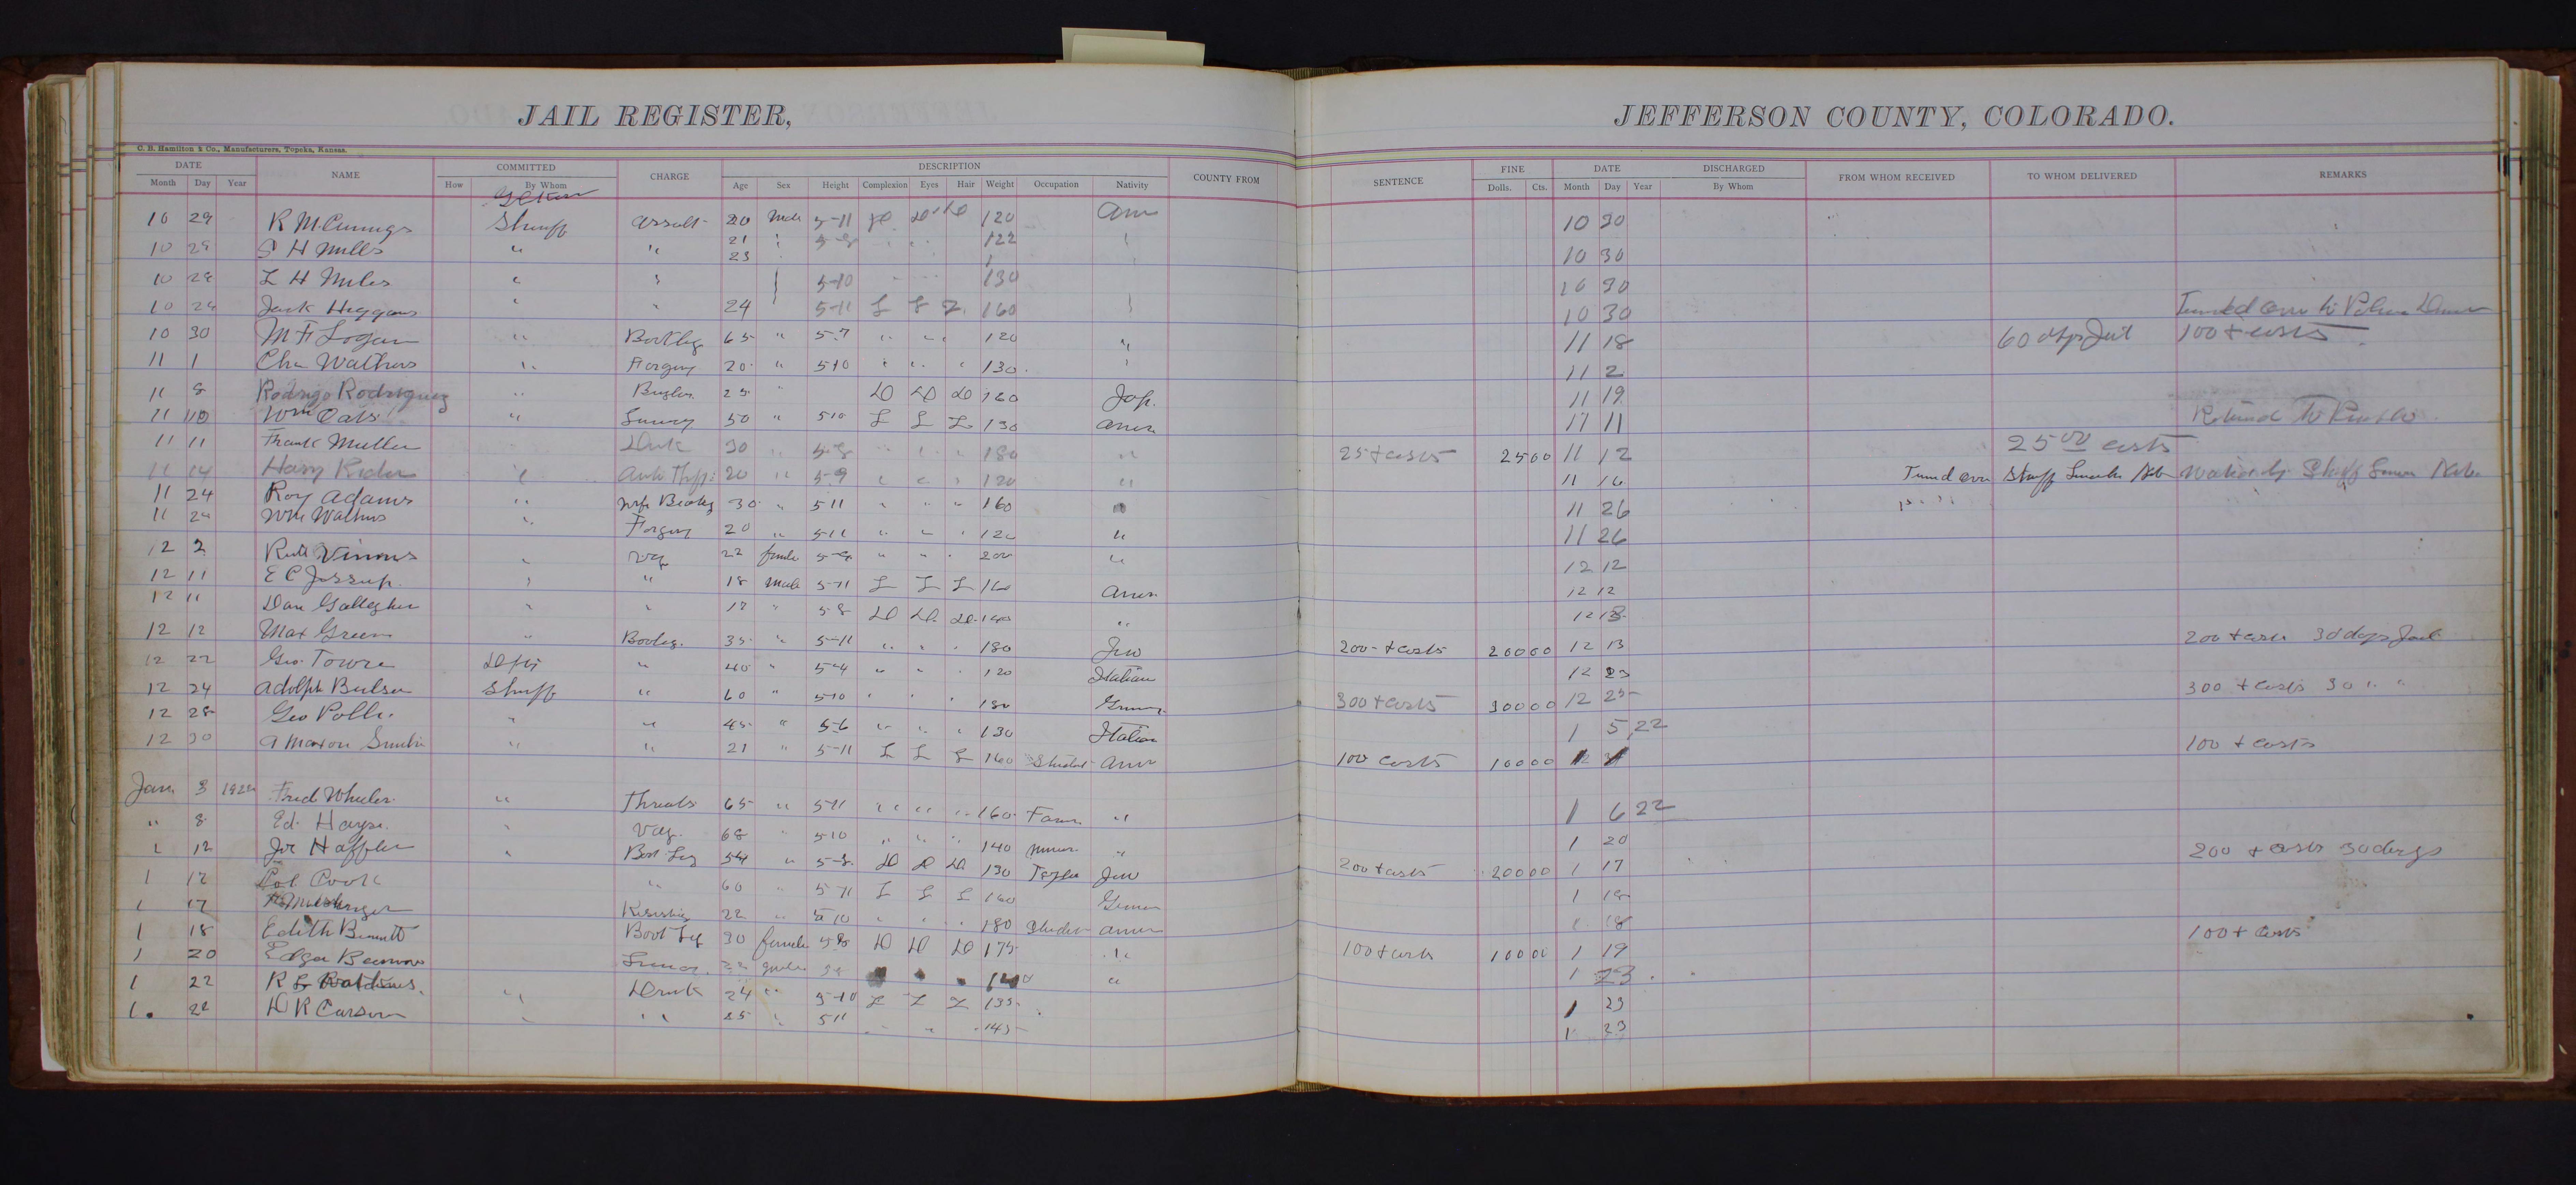 JAIL REGISTER, JEFFERSON COUNTY, COLORADO.
C. B. Hamilton & Co., Manufacturers, Topeka, Kansas.
DATE NAME COMMITTED CHARGE DESCRIPTION COUNTY FROM SENTENCE FINE DATE DISCHARGED FROM WHOM RECEIVED TO WHOM DELIVERED REMARKS
Month Day Year How By Whom Age Sex Height Complexion Eyes Hair Weight Occupation Nativity Dolls. Cts. Month Day Year By Whom
10 29 R McCunnigs Sheriff assault 20 Male 5-11 D D D 120 Am 10 30
10 29 S H Mills " " 21 5-8 122 10 30
23
10 29 L H Miles " " 5-10 130 10 30
10 29 Jack Higgans " " 24 5-11 L L L 160 10 30 Turned over to Police Denver
10 30 M F Logan " Bootleg 65 " 5-7 " " " 120 " 11 18 60 days Jail 100 + costs
11 1 Cha Wathers " Forgery 20 " 5-10 " " " 130 " 11 2
11 8 Rodrigo Rodriguez " Burglar 25 " D D D 160 11 19
11 10 Wm Oats " Lunacy 50 " 5-10 L L L 130 Amer 11 11 Returned to Pueblo
11 11 Frank Muller Drunk 30 " 5-8 " " " 180 " 25 + costs 25 00 11 12 25 00 costs
11 14 Harry Rider " Auto Theft 20 " 5-9 " " " 120 " 11 16 Turned over Sheriff
11 24 Roy Adams " Wife Beating 30 " 5 11 " " " 160 11 26
11 24 Wm Wathers " Forgery 20 " 5-11 " " " 120 " 11 26
12 2 Ruth Vinnus " Vag 22 female 5-4 " " " 200 " 12 12
12 11 E C Jessup " " 18 Male 5-11 L L L 160 Amer 12 12
12 11 Dan Gallegher " " 17 " 5-8 D D D 140 " 12 13
12 12 Max Green " Bootleg. 35 " 5-11 " " " 180 Jew 200 + costs 200 00 12 13 200 + costs 30 days Jail
12 22 Geo. Towre Depty " 40 " 5-4 " " " 120 Italian 12 23
12 24 Adolph Bulsen Sheriff " 60 " 5-10 " " " 180 German 300 + costs 300 00 12 25 300 + costs 30 " "
12 28 Geo Polli " " 45 " 5-6 " " " 130 Italian 1 5 22
12 30 A Maxon Smith " " 21 " 5-11 L L L 160 Student Amer 100 costs 100 00 12 31 100 + costs
Jan. 3 1922 Fred Wheeler " Threats 65 " 5-11 " " " 160 Farmer " 1 6 22
" 8 Ed. Hayse " Vag. 68 " 5-10 " " " 140 miner " 1 20
1 12 Joe Haffler " Boot Leg 54 " 5-8 D D D 130 Jew 200 + costs 200 00 1 17 200 + costs 30 days
1 12 Cook " 60 " 5-11 L L L 160 German 1 18
1 17 Resisting 22 " 5-10 " " " 180 Student Amer 1 18
1 18 Edith Bennett Boot Leg 30 female 5-8 D D D 175 " 100 + costs 100 00 1 19 100 + costs
1 20 Edgar Lunacy. 22 male 140 " 1 23
1 22 R L Watkins. " Drunk 24 " 5-10 L L L 135 1 23
1 22 D R Carson " " 25 " 5 11 " " " 145 1 23